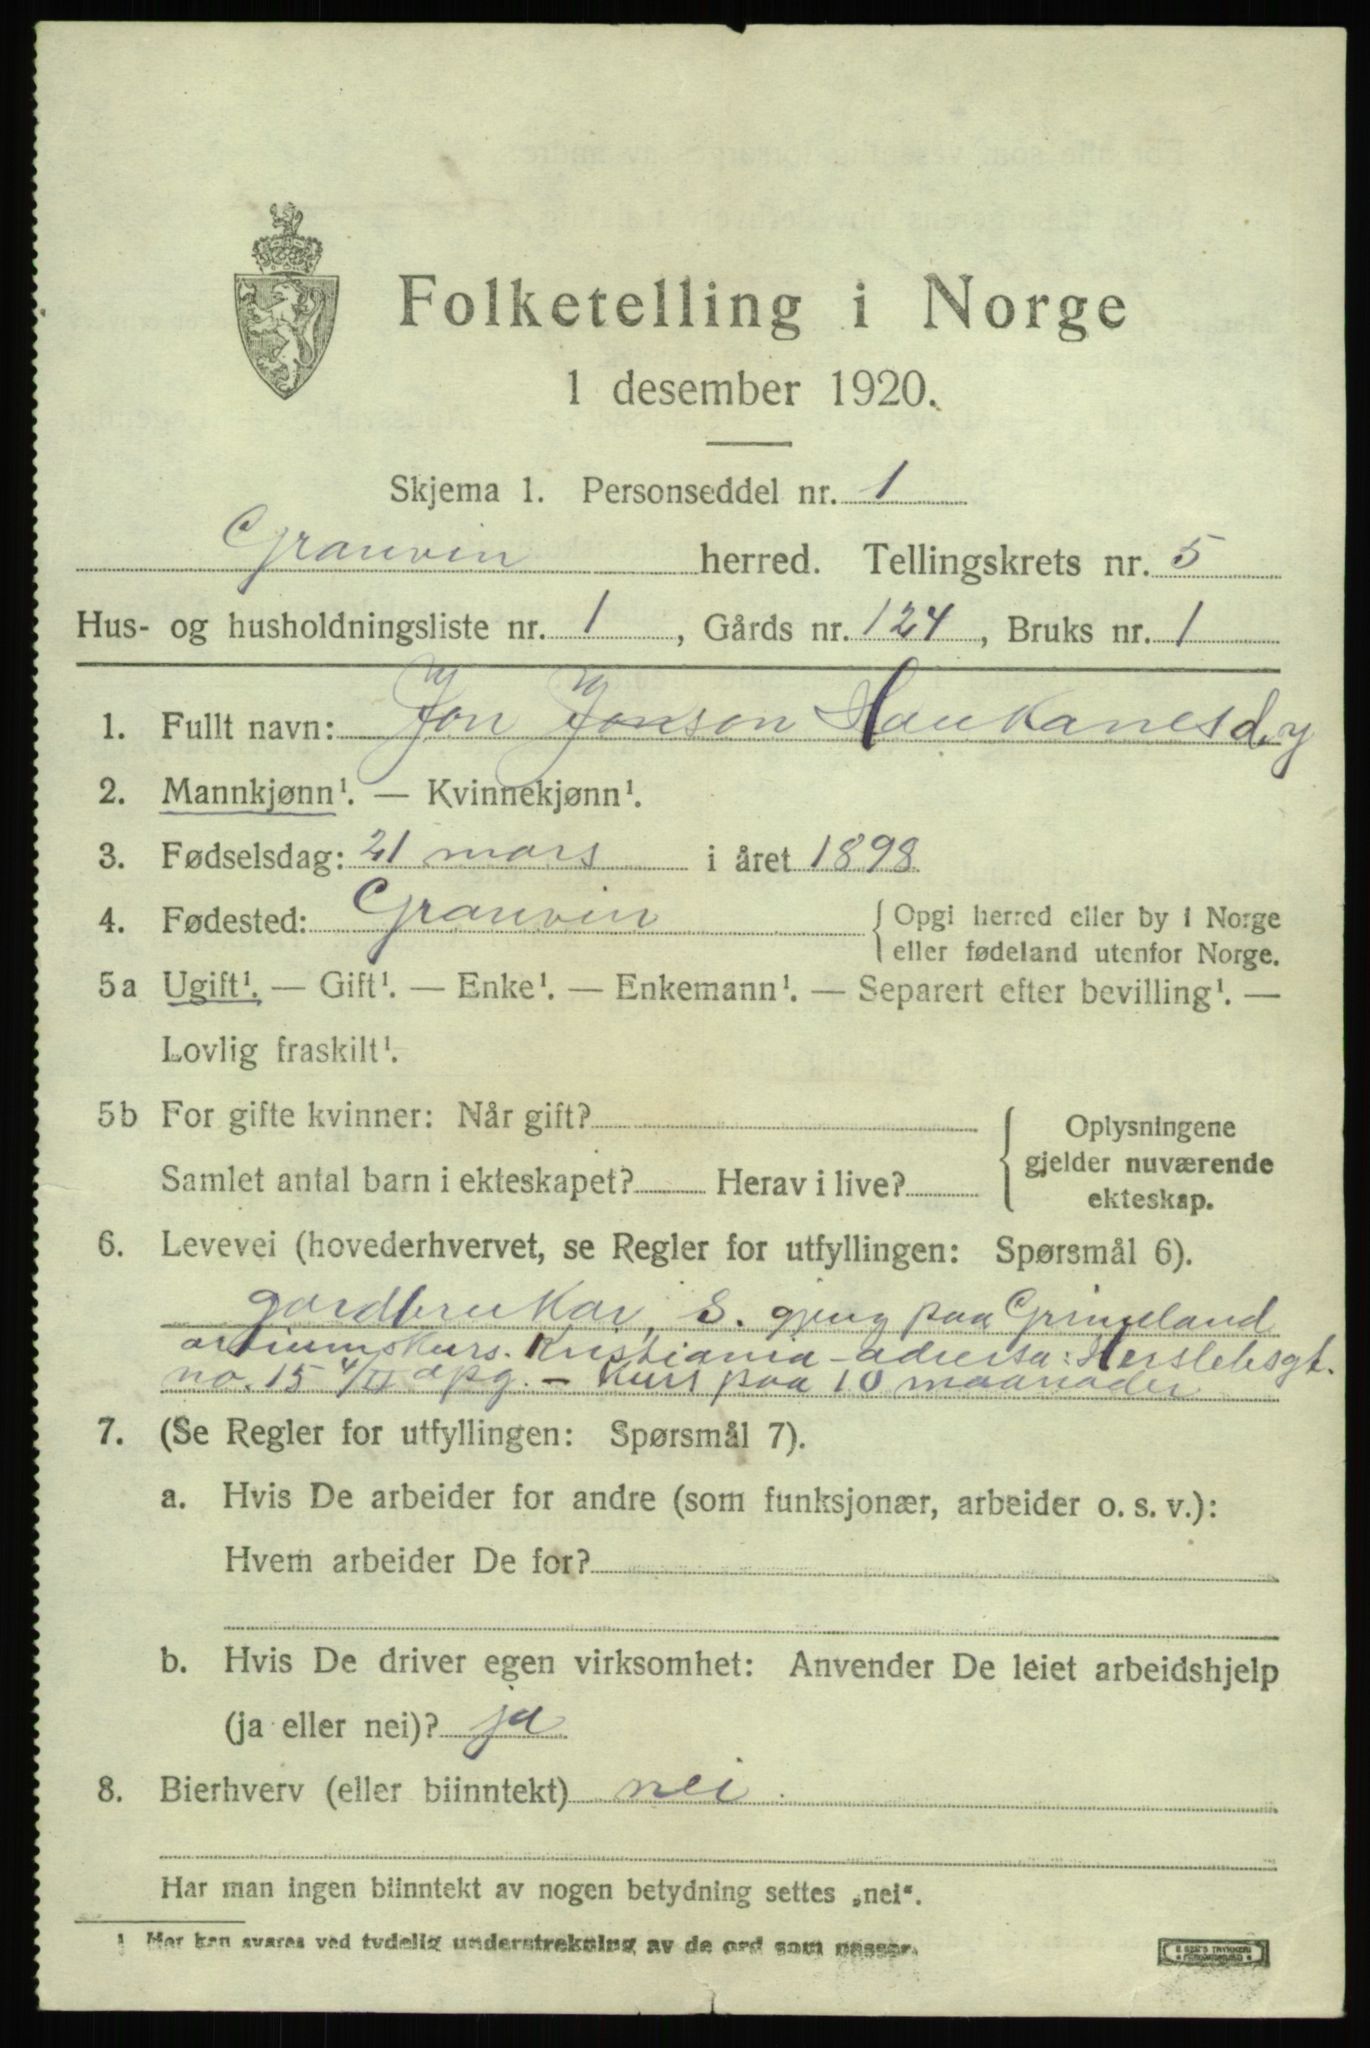 Folketelling i Norge
1 desember 1920.
Skjema 1. Personseddel nr. 1
Granvin herred. Tellingskrets nr. 5
Hus- og husholdningsliste nr. 1, Gårds nr. 124, Bruks nr. 1
1. Fullt navn: Jon Jonson Haukanes d.y
2. Mannkjønn¹. — Kvinnekjønn¹.
3. Fødselsdag: 21 mars i året 1898
4. Fødested: Granvin { Opgi herred eller by i Norge
eller fødeland utenfor Norge.
5a Ugift¹. — Gift¹. — Enke¹. — Enkemann¹. — Separert efter bevilling¹. —
Lovlig fraskilt¹.
5b For gifte kvinner: Når gift?
Samlet antal barn i ekteskapet? Herav i live?
Oplysningene
gjelder nuværende
ekteskap.
6. Levevei (hovederhvervet, se Regler for utfyllingen: Spørsmål 6).
gardbrukar, S. gjeng paa Grimeland
artiumskurs. Kristiania - adressa: Herslebsgt.
no. 15 4/II opg. - Kurs paa 10 maanader
7. (Se Regler for utfyllingen: Spørsmål 7).
a. Hvis De arbeider for andre (som funksjonær, arbeider o. s. v.):
Hvem arbeider De for?
b. Hvis De driver egen virksomhet: Anvender De leiet arbeidshjelp
(ja eller nei)? ja
8. Bierhverv (eller biinntekt) nei.
Har man ingen biinntekt av nogen betydning settes „nei“.
¹ Her kan svares ved tydelig understrekning av de ord som passer.